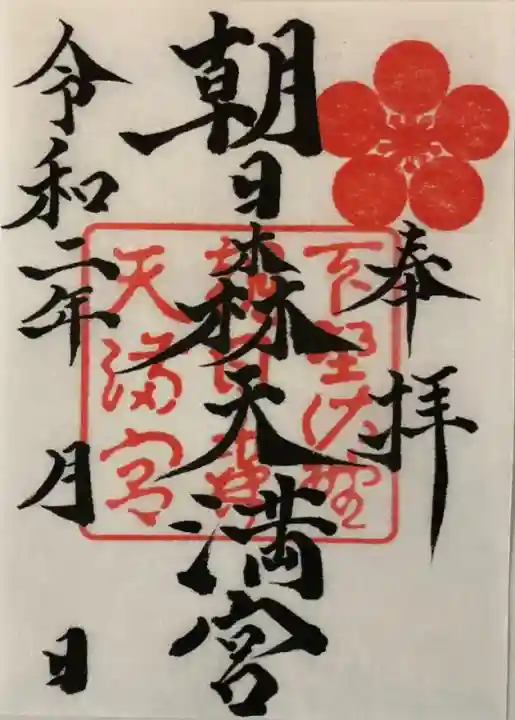 奉拝
朝日森天満宮
令和二年 月 日
下野佐野
朝日森
天満宮